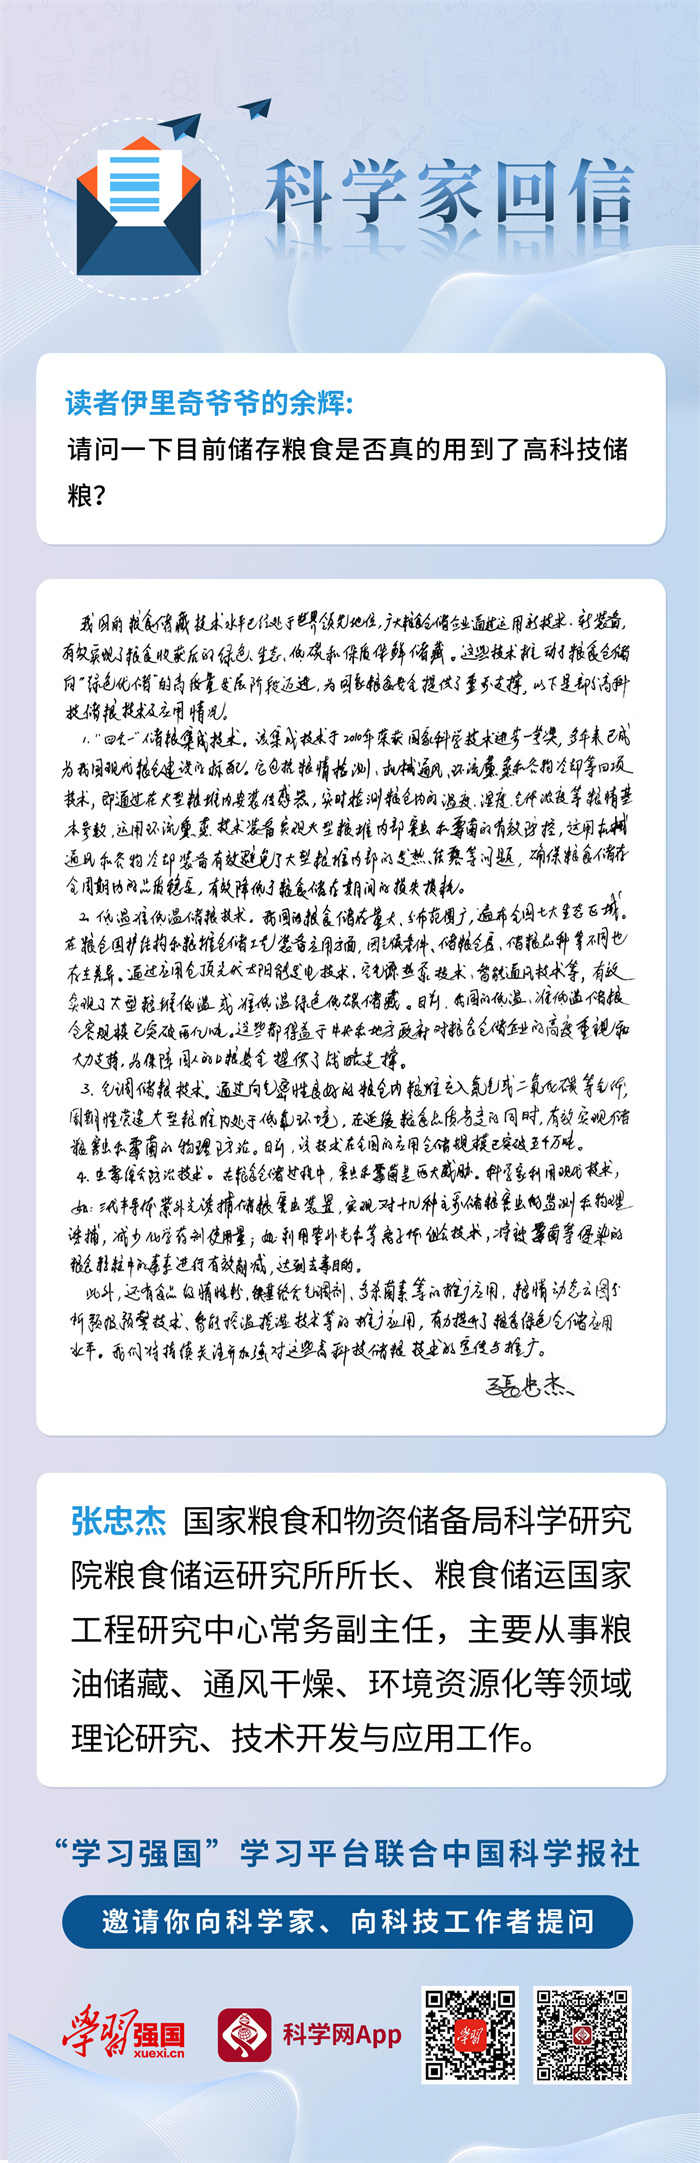 科学家回信
读者伊里奇爷爷的余辉:
请问一下目前储存粮食是否真的用到了高科技储
粮?
我国的粮食储藏技术水平已经处于世界领先地位,广大粮食仓储企业通过运用新技术、新装备,
有效实现了粮食收获后的绿色、生态、低碳和保质保鲜储藏。这些技术推动了粮食仓储
向“绿色优储”的高质量发展阶段迈进,为国家粮食安全提供了重要支撑。以下是部分高科
技储粮技术及应用情况。
1.“四合一”储粮集成技术。该集成技术于2010年荣获国家科学技术进步一等奖,多年来已成
为我国现代粮仓建设的标配。它包括粮情检测、机械通风、环流熏蒸和谷物冷却等四项
技术,即通过在大型粮堆内安装传感器,实时检测粮仓内的温度、湿度、气体浓度等粮情基
本参数,运用环流熏蒸技术装备实现大型粮堆内部害虫和霉菌的有效防控,运用机械
通风和谷物冷却装备有效避免了大型粮堆内部的发热、结露等问题,确保粮食储存
全周期内的品质稳定,有效降低了粮食储存期间的损失损耗。
2.低温准低温储粮技术。我国的粮食储存量大、分布范围广,遍布全国七大生态区域。
在粮仓围护结构和粮堆仓储工艺装备应用方面,因气候条件、储粮仓房、储粮品种等不同也
存在差异。通过应用仓顶光伏太阳能发电技术、空气源热泵技术、智能通风技术等,有效
实现了大型粮堆低温或准低温绿色低碳储藏。目前,我国的低温、准低温储粮
仓容规模已突破两亿吨。这些都得益于中央和地方政府对粮食仓储企业的高度重视和
大力支持,为保障国人的口粮安全提供了战略支撑。
3.气调储粮技术。通过向气密性良好的粮仓内粮堆充入氮气或二氧化碳等气体,
周期性营造大型粮堆内处于低氧环境,在延缓粮食品质劣变的同时,有效实现储
粮害虫和霉菌的物理防治。目前,该技术在全国的应用仓储规模已突破五千万吨。
4.虫霉综合防治技术。在粮食仓储过程中,害虫和霉菌是两大威胁。科学家利用现代技术,
如:三代半导体紫外光诱捕储粮害虫装置,实现对十几种主要储粮害虫的监测和物理
诱捕,减少化学药剂使用量;如:利用紫外光和等离子体组合技术,将被霉菌等侵染的
粮食籽粒中的毒素进行有效削减,达到去毒目的。
此外,还有食品级惰性粉、多杀菌素等的推广应用,粮情动态云图分
析预报预警技术、智能控温控湿技术等的推广应用,有力提升了粮食绿色仓储应用
水平。我们将持续关注并加强对这些高科技储粮技术的宣传与推广。
张忠杰
张忠杰 国家粮食和物资储备局科学研究
院粮食储运研究所所长、粮食储运国家
工程研究中心常务副主任，主要从事粮
油储藏、通风干燥、环境资源化等领域
理论研究、技术开发与应用工作。
“学习强国”学习平台联合中国科学报社
邀请你向科学家、向科技工作者提问
學習强国
xuexi.cn
科学网App